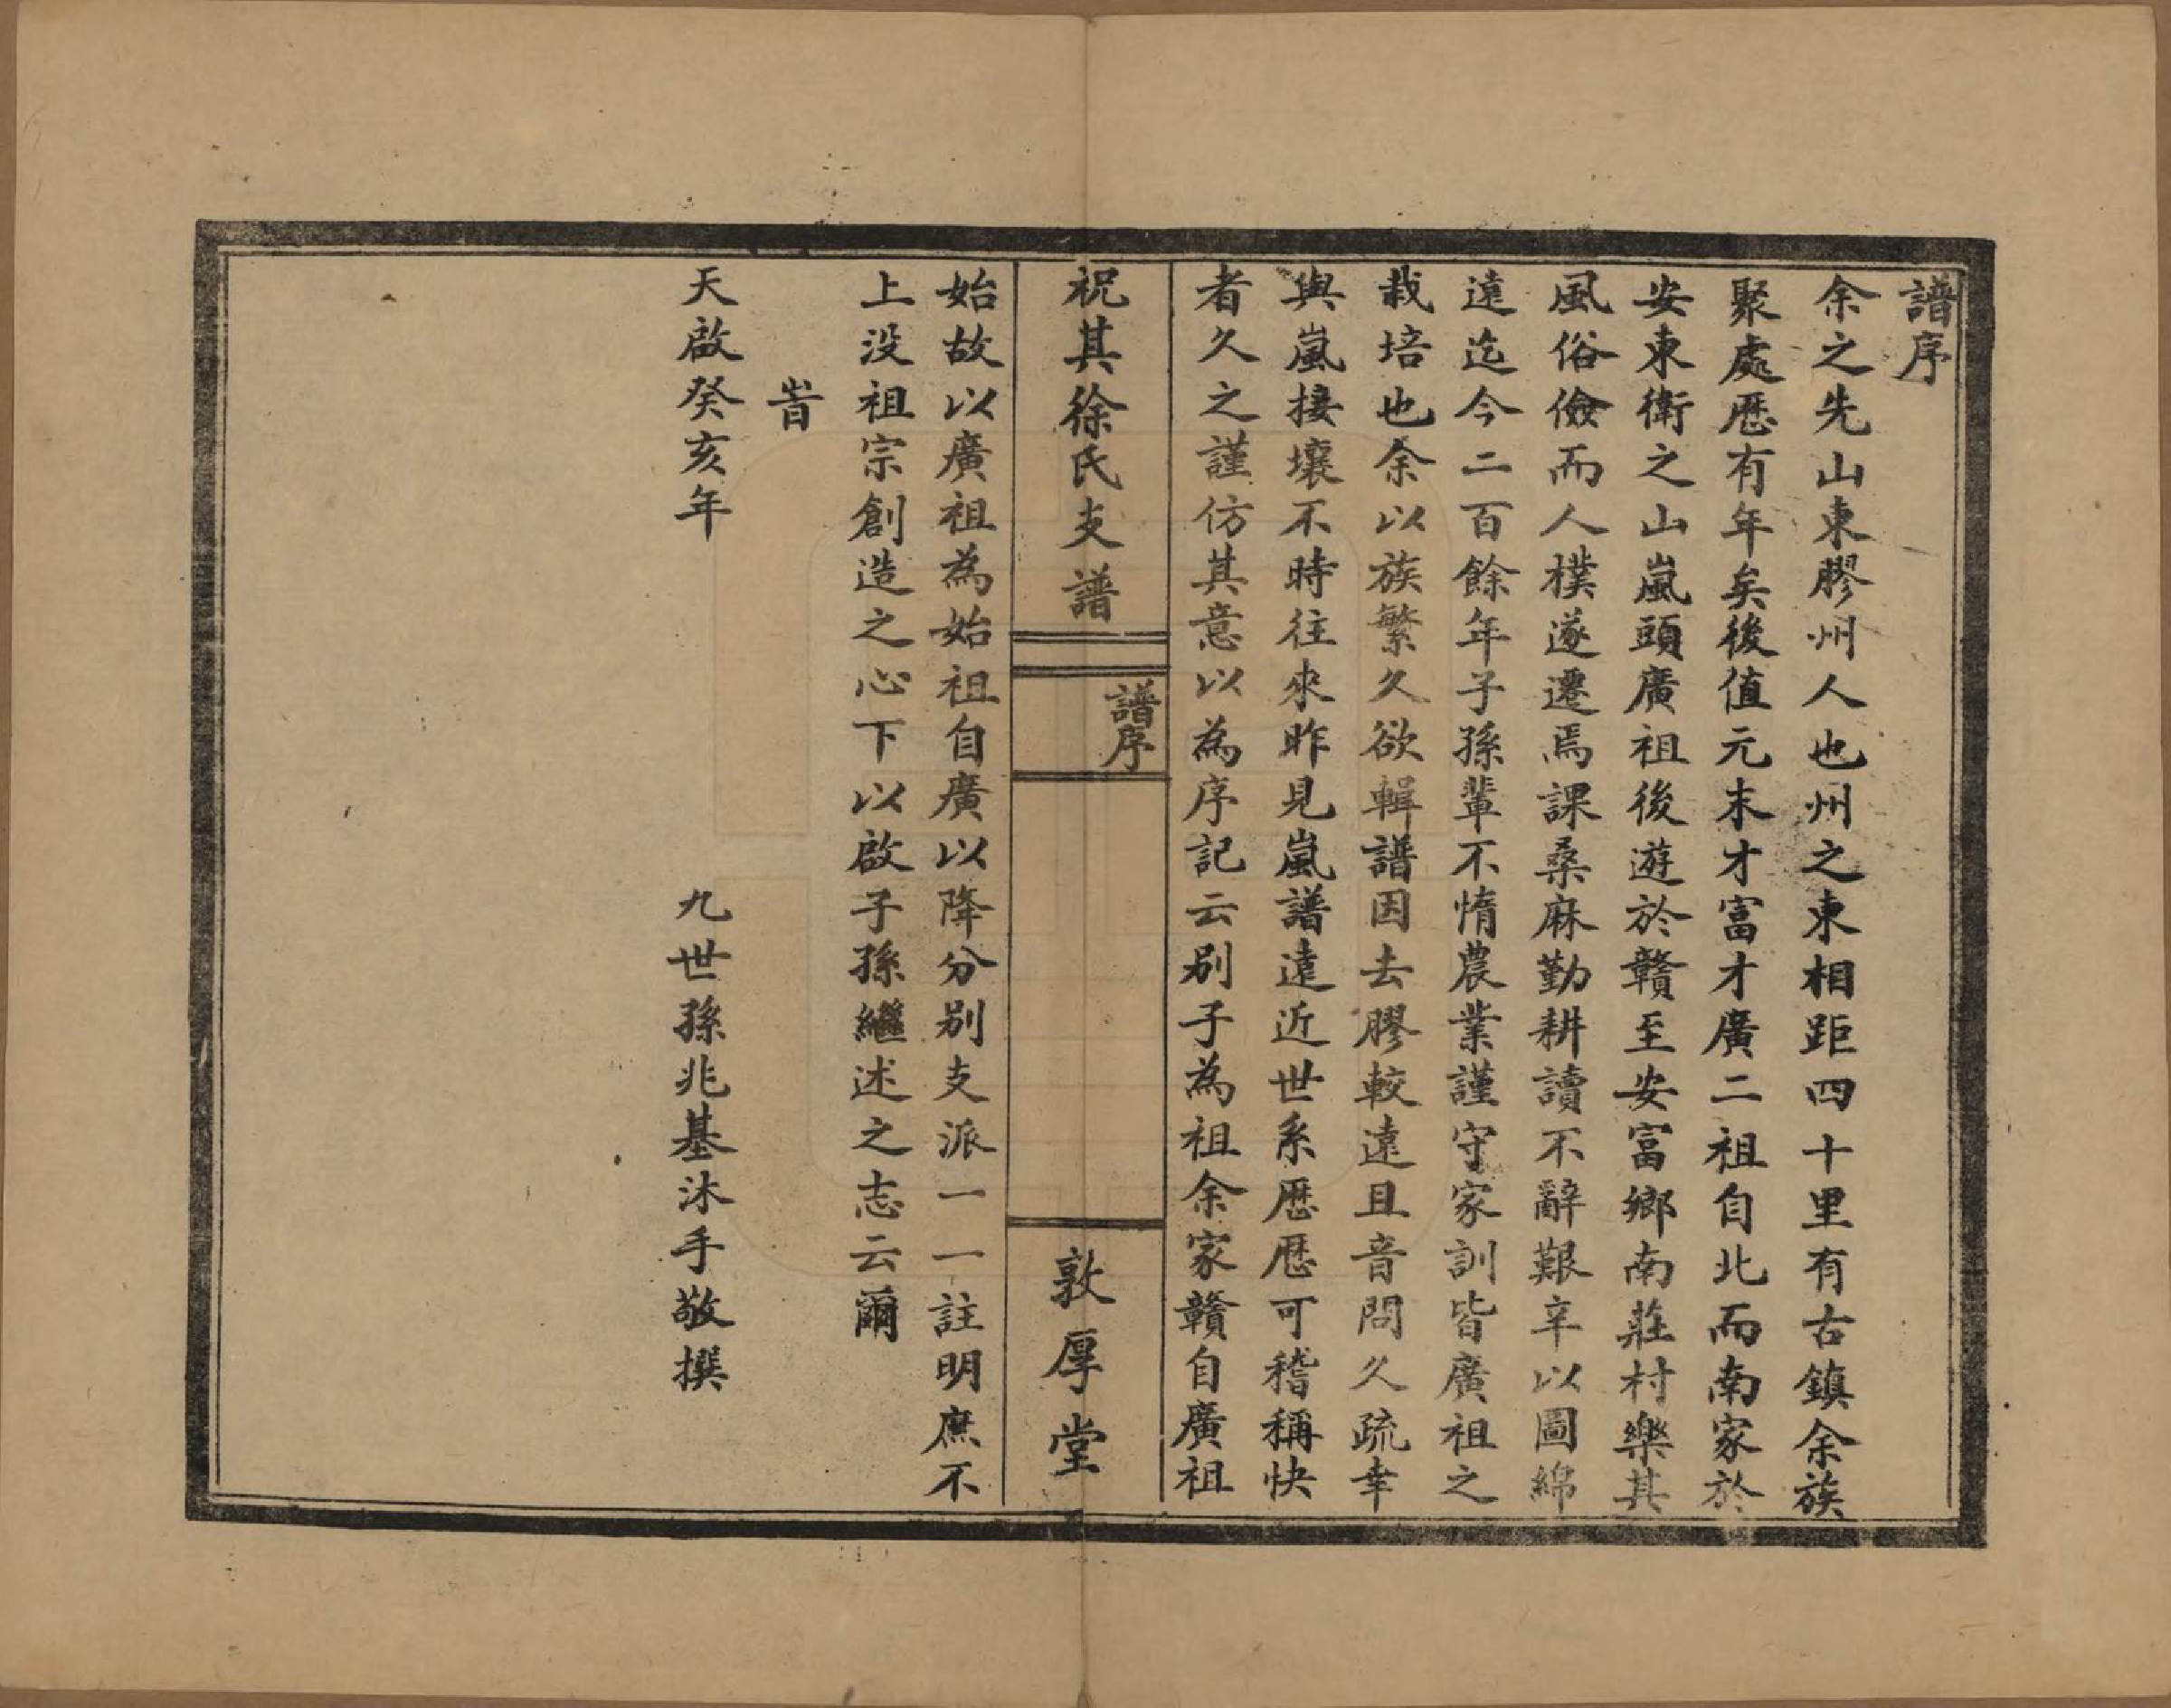 譜序
余之先山東膠州人也州之東相距四十里有古鎮余族
聚處歷有年矣後值元末才富才廣二祖自北而南家於
安東衛之山嵐頭廣祖後遊於贛至安富鄉南莊村樂其
風俗儉而人樸遂遷焉課桑麻勤耕讀不辭艱辛以圖綿
遠迄今二百餘年子孫輩不惰農業謹守家訓皆廣祖之
栽培也余以族繁久欲輯譜因去膠較遠且音問久疏幸
與嵐接壤不時往來昨見嵐譜遠近世系歷歷可稽稱快
者久之謹仿其意以為序記云別子為祖余家贛自廣祖
祝其徐氏支譜
譜序
敦厚堂
始故以廣祖為始祖自廣以降分別支派一一註明庶不
上没祖宗創造之心下以啟子孫繼述之志云爾
旹
天啟癸亥年
九世孫兆基沐手敬撰